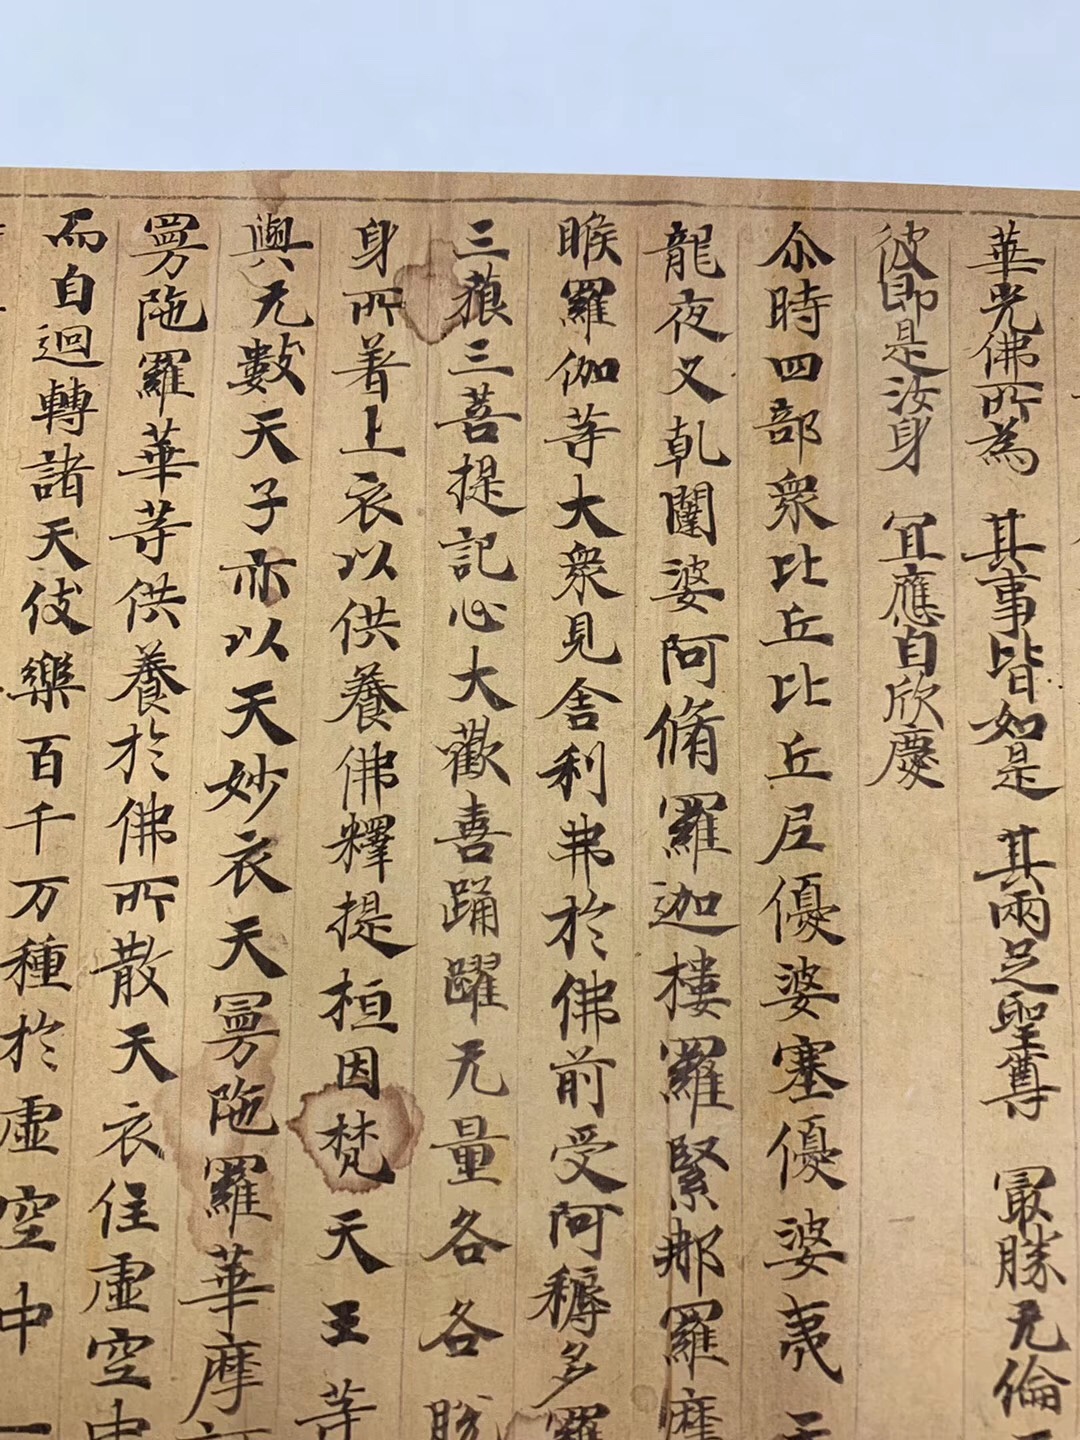 華光佛所為　其事皆如是　其兩足聖尊　冣勝无倫
彼即是汝身　冝應自欣慶
尒時四部衆比丘比丘尼優婆塞優婆夷天
龍夜叉乹闥婆阿脩羅迦樓羅緊那羅摩
睺羅伽等大衆見舍利弗於佛前受阿耨多羅
三藐三菩提記心大歡喜踊躍无量各各脫
身所著上衣以供養佛釋提桓因梵天王等
與无數天子亦以天妙衣天曼陁羅華摩訶
曼陁羅華等供養於佛所散天衣住虛空中
而自迴轉諸天伎樂百千万種於虛空中一